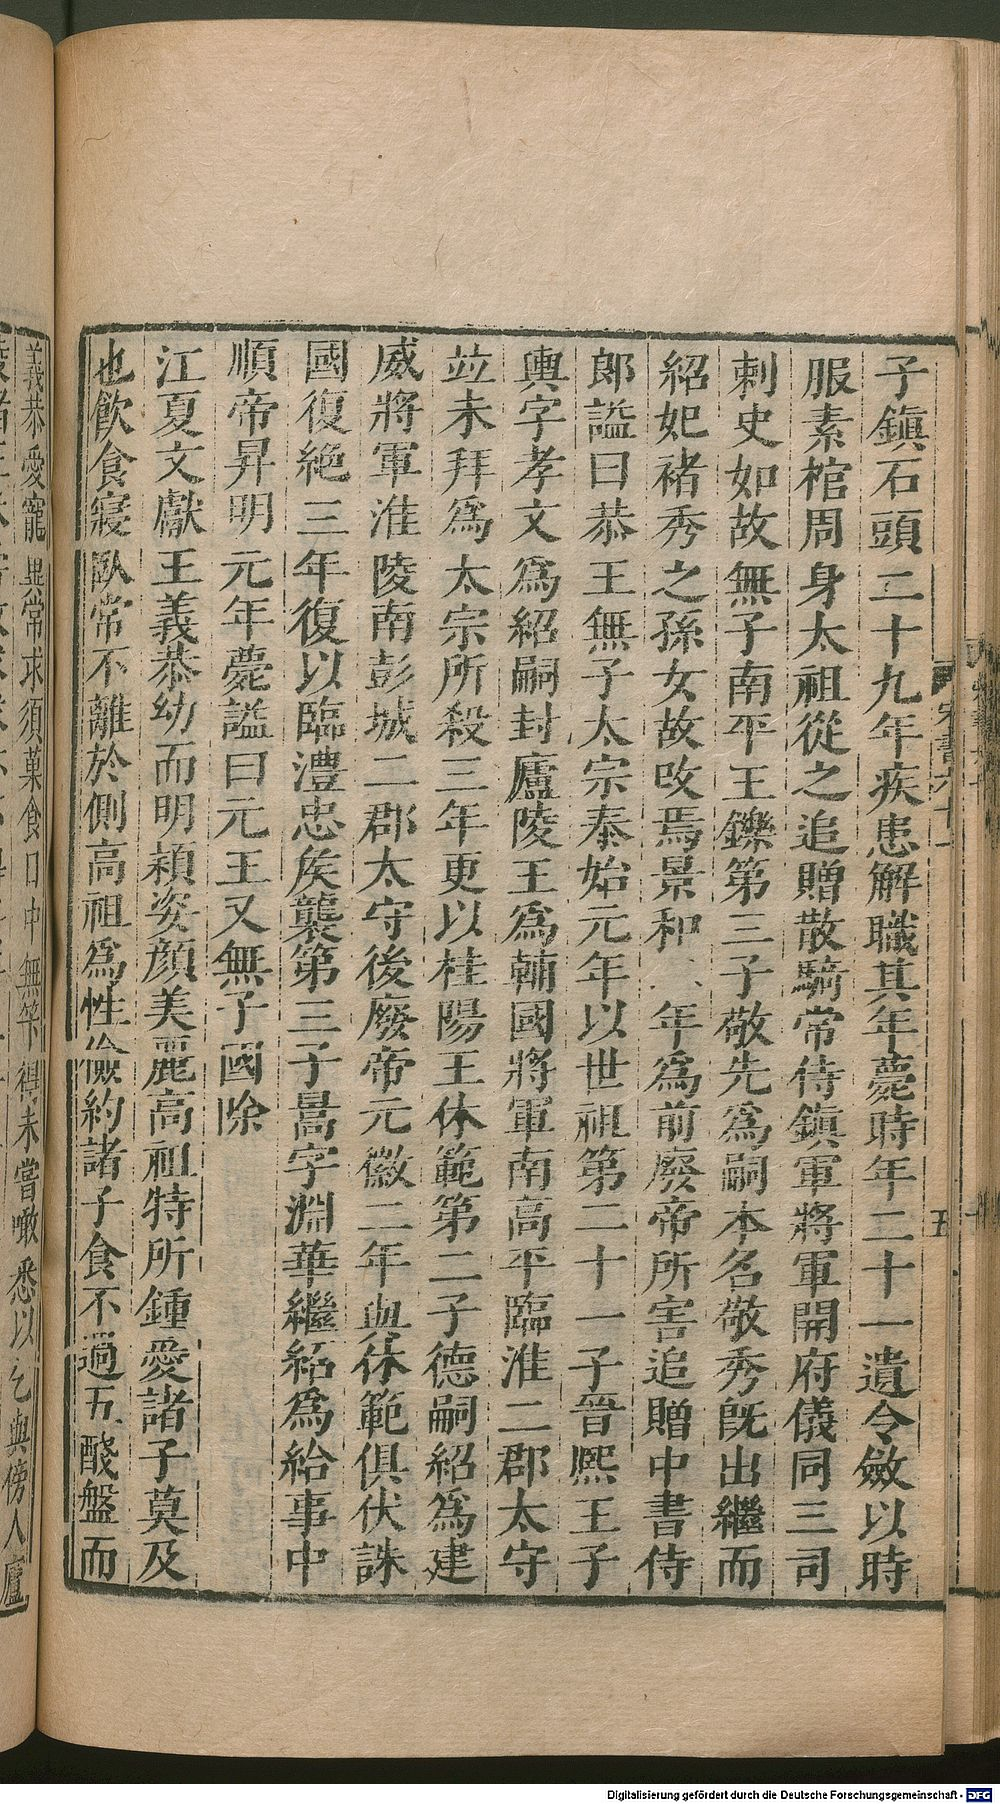 子鎮石頭二十九年疾患解職其年薨時年二十一遺令斂以時
服素棺周身太祖從之追贈散騎常侍鎮軍將軍開府儀同三司
刺史如故無子南平王鑠第三子敬先為嗣本名敬秀既出繼而
紹妃褚秀之孫女故改焉景和年為前廢帝所害追贈中書侍
郎謚曰恭王無子太宗泰始元年以世祖第二十一子晉熙王子
輿字孝文為紹嗣封廬陵王為輔國將軍南高平臨淮二郡太守
竝未拜為太宗所殺三年更以桂陽王休範第二子德嗣紹為建
威將軍淮陵南彭城二郡太守後廢帝元徽二年與休範俱伏誅
國復絕三年復以臨澧忠侯襲第三子暠字淵華繼紹為給事中
順帝昇明元年薨謚曰元王又無子國除
江夏文獻王義恭幼而明穎姿顏美麗高祖特所鍾愛諸子莫及
也飲食寢臥常不離於側高祖為性儉約諸子食不過五醆盤而
義恭愛寵異常求須菓食日中無筭得未嘗噉悉以乞與傍人廬
宋書六十一
五
Digitalisierung gefördert durch die Deutsche Forschungsgemeinschaft - DFG